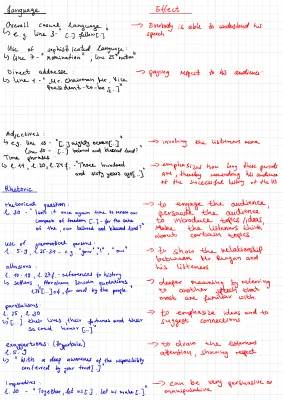 Language
Effect
Overall casual language
→ Everybody is able to understand his
speech
↳ e.g. line 3 "[..] fellow [..]
Use of sophisticated language
↳ line 7 - "nomination", line 25 "nation"
Direct addresse
→ paying respect to his audience
↳ line 1 - "Mr. Chairman Mr. Vice
President-to-be [..]"
Adjectives:
↳ e.g. line 10 - "[..] mighty ocean [..]
→ involving the listeners more
beloved and blessed land?"
Time phrases
→ emphasize how long these periods
are, thereby reminding his audience
of the successful history of the US
"Three hundred
and sixty years ago [..]"
Rhetoric
rhetorical question:
→ to engage the audience,
l. 30 - "Isn't it once again time to renew our
persuade the audience,
compact of freedom [..] - for the sake
introduce topics/ideas,
of this, our beloved and blessed land?"
Make the listeners think
about certain topics
Use of personal pronouns:
→ to show the relationship
e.g. "your", "I", "our"
between Mr Reagan and
his listeners
allusions:
references to history
→ deeper meaning by referring
to another effect that
Abraham Lincoln
most are familiar with
of, for and by the people
parallelisms:
→ to emphasize ideas and to
suggest connections
↳ [..] their lives, their fortunes and their
sacred honor [..]"
exaggerations: (Hyperbole)
→ to draw the listeners
attention, showing respect
"With a deep awareness of the responsibility
conferred by your trust [..]"
Imperatives
→ can be very persuasive or
manipulative
l. 30 - "Together, let us [..] let us make [..]"